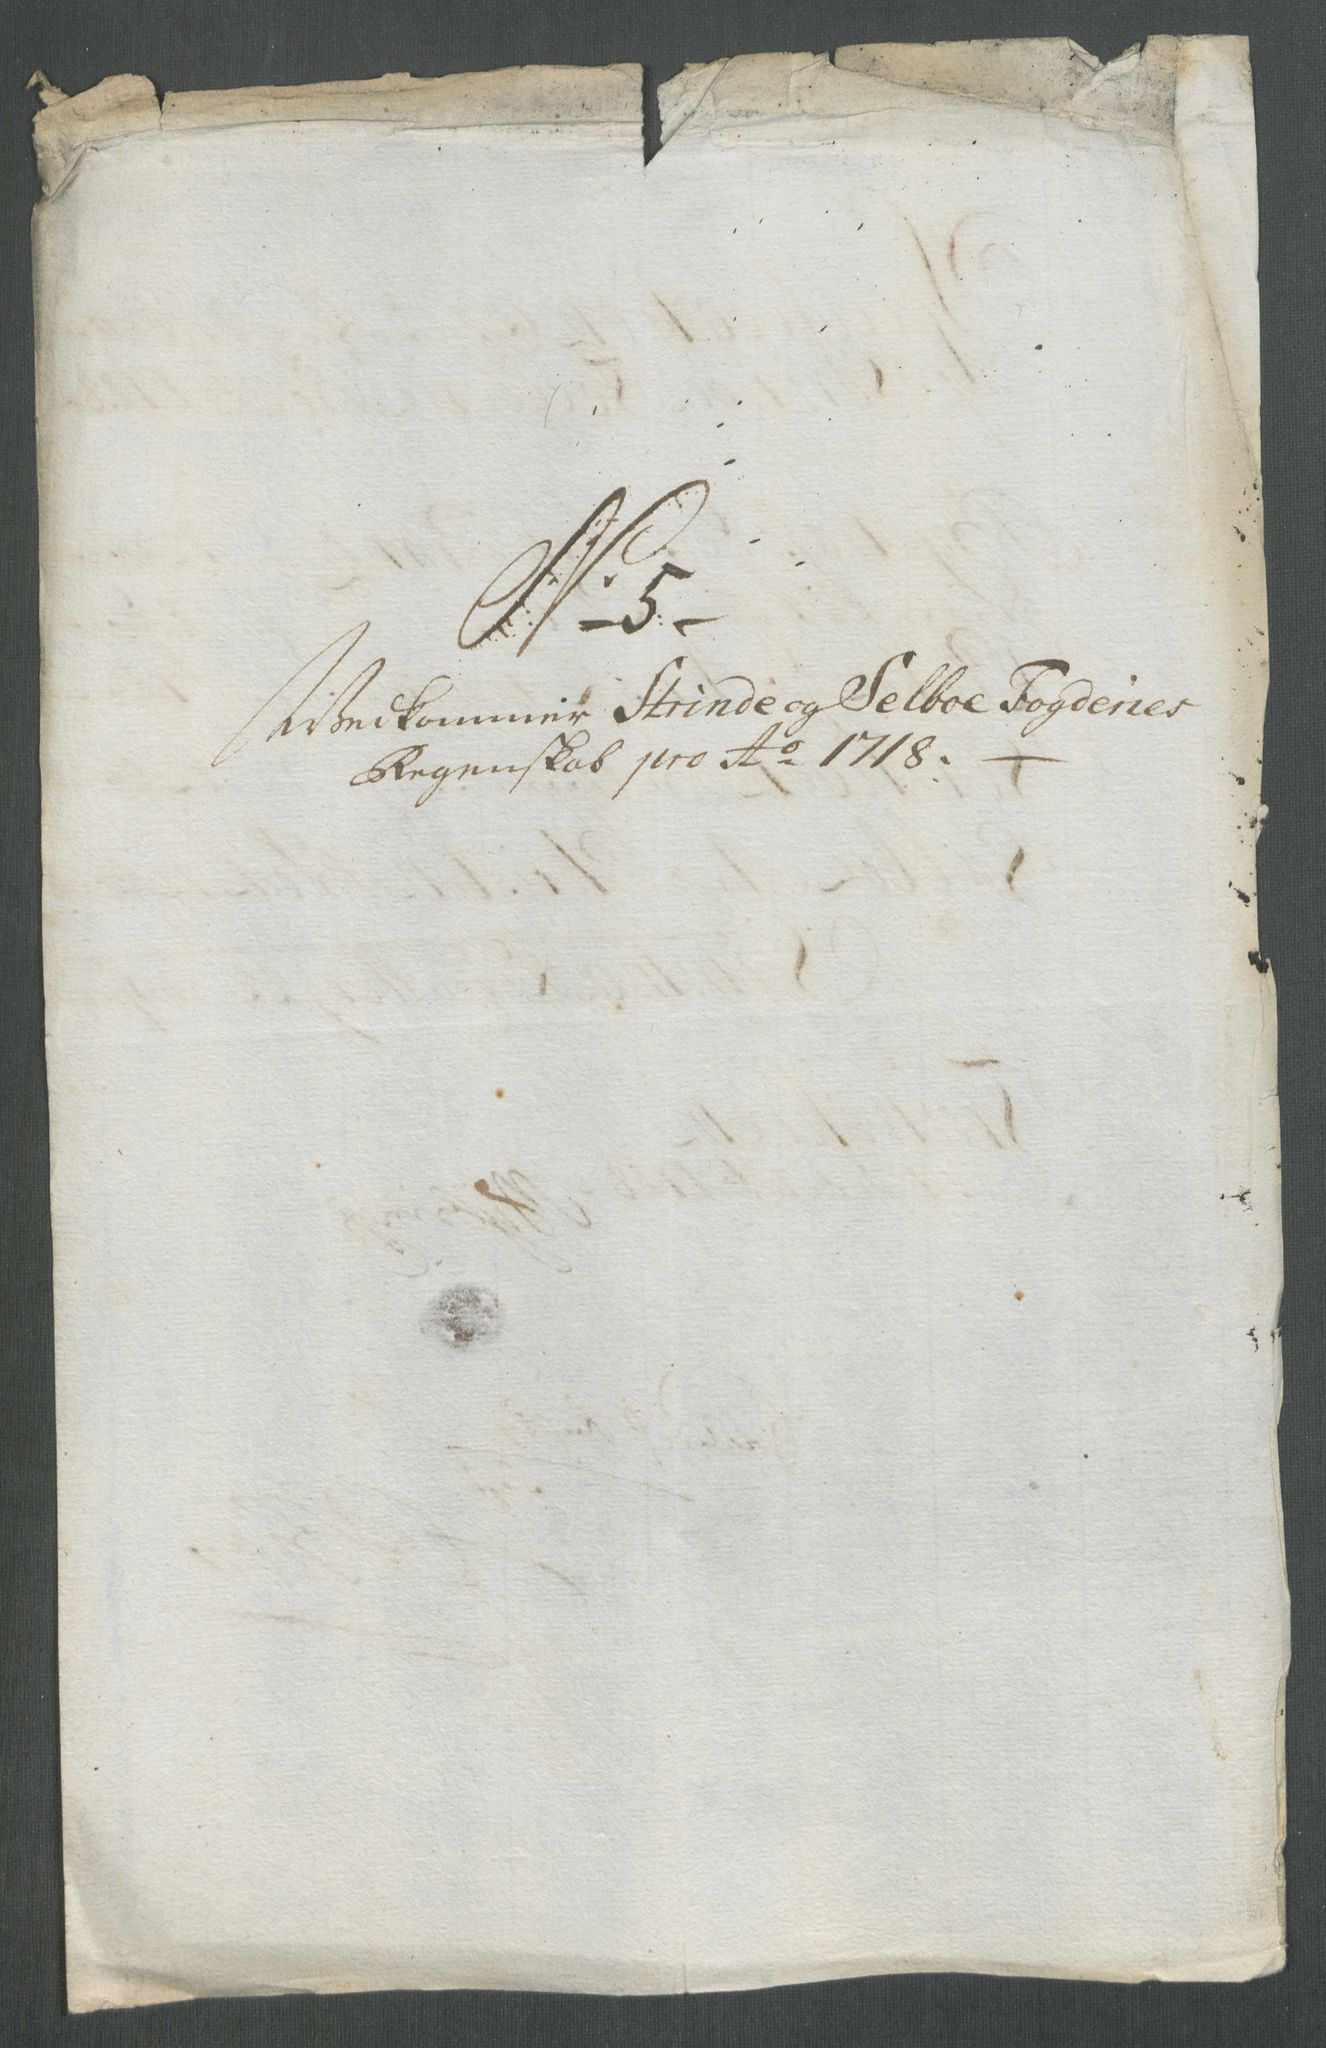 N. 5
Vedkommer Strinde og Selboe Fogderies
Regenskab pro Ao 1718.